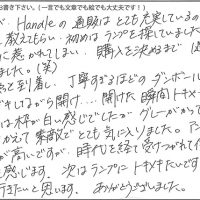 お書き下さい。(一言でも文章でも絵でも大丈夫です!)
、Handleの通販はとても充実しているの
教えてもらい、初めはランプを探していました
に惹かれてしまい、購入を決めまで
ました。(笑)
と到着し、丁寧すぎるほどのダンボール
ドキしながら開け…、開けた瞬間トキメ
は枠が白い感じでしたが、グレーがかって
かえって素敵でとても気に入りました。
が高いですが、時代を経て受けつがれて
します。次はランプにトキメキたいです
行きたいと思います。ありがとうございました。